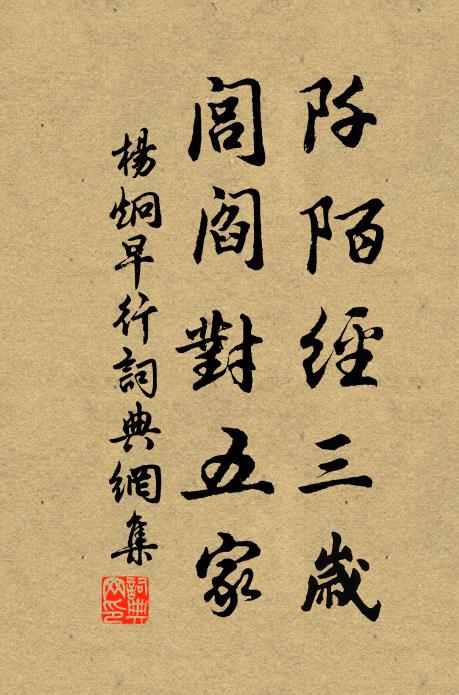 阡陌經三歲
閭閻對五家
楊炯早行詞典網集
詞典網印